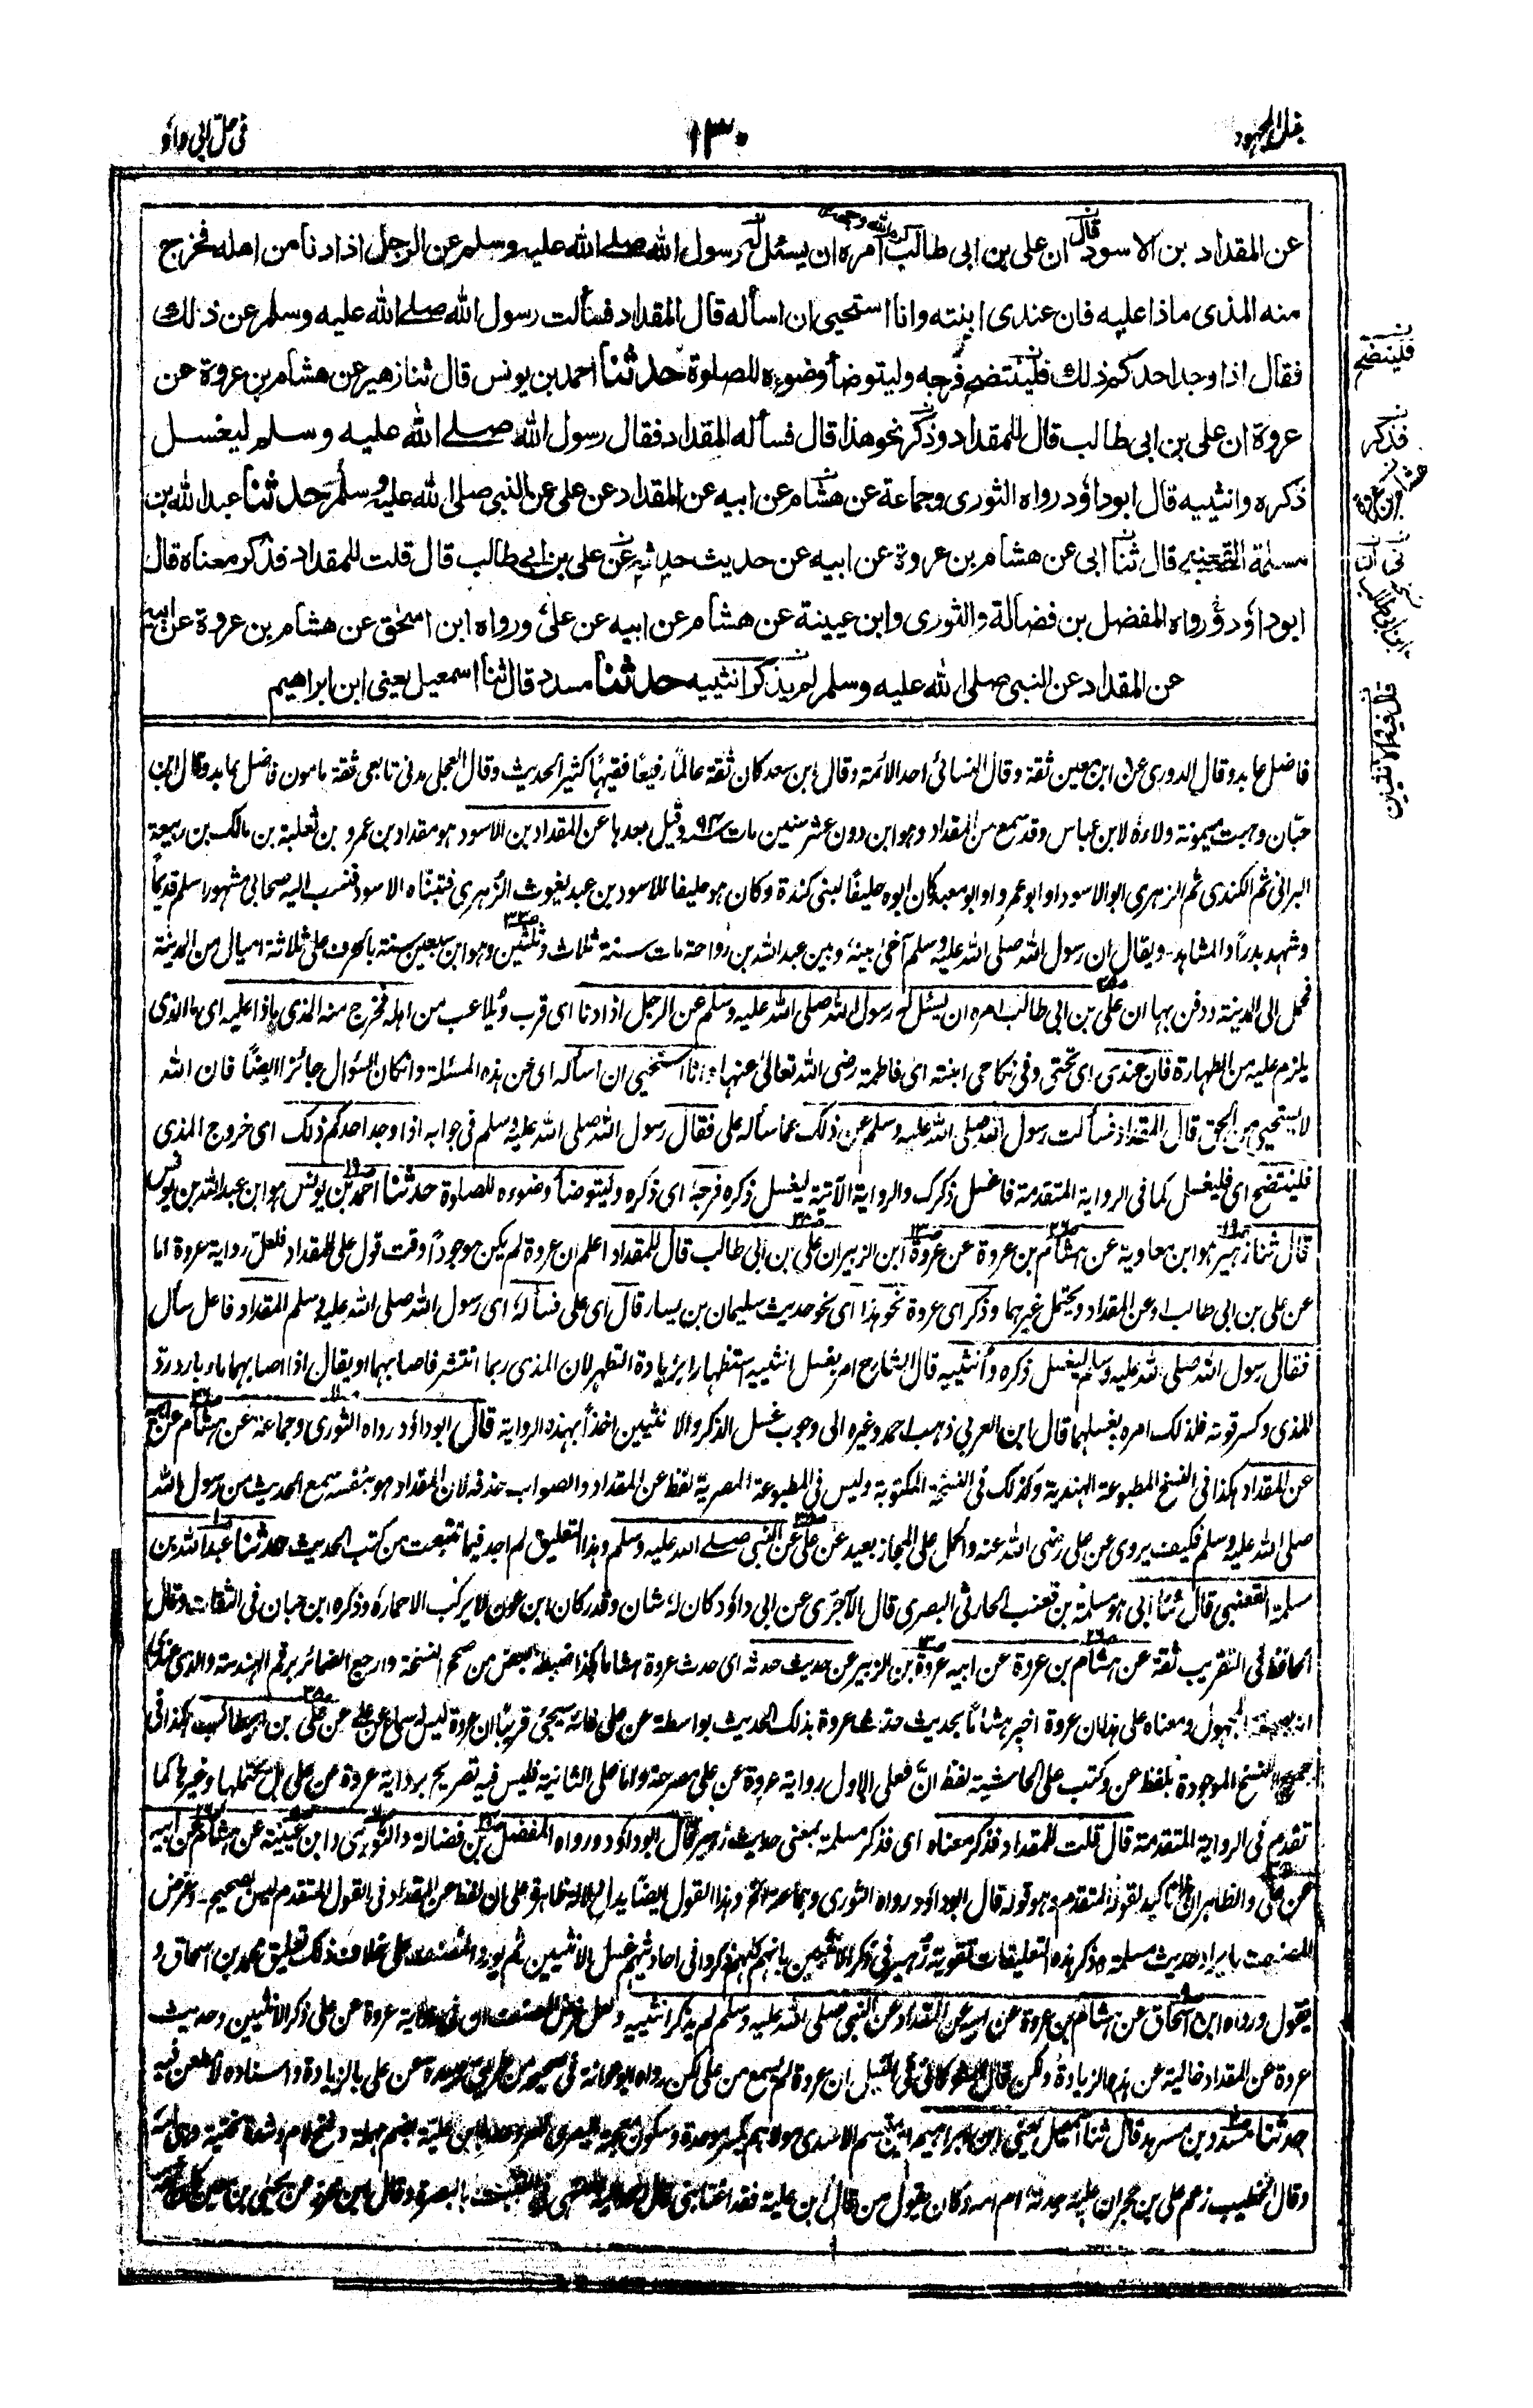 بذل المجهود
١٣٠
في حل ابي داؤد
عن المقداد بن الاسود قال ان علي بن ابي طالب كرم الله وجهه امره ان يسئل له رسول الله صلے الله عليه وسلم عن الرجل اذا دنا من اهله فخرج
منه المذى ماذا عليه فان عندى ابنته وانا استحيى ان اسأله قال المقداد فسألت رسول الله صلے الله عليه وسلم عن ذلك
فقال اذا وجد احدكم ذلك فلينتضح فرجه وليتوضأ وضوءه للصلوة حدثنا احمد بن يونس قال ثنا زهير عن هشام بن عروة عن
عروة ان علي بن ابي طالب قال للمقداد وذكر نحو هذا قال فسأله المقداد فقال رسول الله صلے الله عليه وسلم ليغسل
ذكره وانثييه قال ابوداؤد رواه الثورى وجماعة عن هشام عن ابيه عن المقداد عن علي عن النبي صلى الله عليه وسلم حدثنا عبدالله بن
مسلمة القعنبي قال ثنا ابي عن هشام بن عروة عن ابيه عن حديث حدثه عن علي بن ابي طالب قال قلت للمقداد فذكر معناه قال
ابوداؤد ورواه المفضل بن فضالة والثورى وابن عيينة عن هشام عن ابيه عن علي ورواه ابن اسحق عن هشام بن عروة عن ابيه
عن المقداد عن النبي صلى الله عليه وسلم لم يذكر انثييه حدثنا مسدد قال ثنا اسمعيل يعنى ابن ابراهيم
فلينضح
فذكر
هشام بن عروة
فاضل عابد وقال الدورى عن ابن معين ثقة وقال النسائى احد الائمة وقال ابن سعد كان ثقة عالمًا رفيعًا فقيهًا كثير الحديث وقال العجلى مدنى تابعى ثقة مامون فاضل عابد وقال ابن
حبّان وهبت ميمونة ولاءه لابن عباس وقد سمع من المقداد وهو ابن دون عشر سنين مات سنة ٩٤ وقيل بعدها عن المقداد بن الاسود هو مقداد بن عمرو بن ثعلبة بن مالك بن ربيعة
البرانى ثم الكندى ثم الزهرى ابو الاسود او ابو عمرو او ابو معبد كان ابوه حليفًا لبنى كندة وكان هو حليفا للاسود بن عبد يغوث الزهرى فتبناه الاسود فنسب اليه صحابى مشهور اسلم قديمًا
وشهد بدرًا والمشاهد۔ ويقال ان رسول الله صلى الله عليه وسلم آخى بينه وبين عبد الله بن رواحة مات سنة ثلاث وثلثين ٣٣ وهو ابن سبعين سنة بالجرف على ثلاثة اميال من المدينة
فحمل الى المدينة ودفن بها ان علي بن ابى طالب امره ان يسئل له رسول الله صلى الله عليه وسلم عن الرجل اذا دنا اى قرب ولاعب من اهله فخرج منه المذى ماذا عليه اى ما الذى
يلزم عليه من الطهارة فان عندى اى تحتى وفى نكاحى ابنته اى فاطمة رضى الله تعالى عنها وانا استحيى ان اسأله اى عن هذه المسئلة وان كان السؤال جائزا ايضًا فان الله
لا يستحيى من الحق قال المقداد فسألت رسول الله صلى الله عليه وسلم عن ذلك عما سأله على فقال رسول الله صلى الله عليه وسلم فى جوابه اذا وجد احدكم ذلك اى خروج المذى
فلينتضح اى فليغسل كما فى الرواية المتقدمة فاغسل ذكرك والرواية الآتية ليغسل ذكره فرجه اى ذكره وليتوضأ وضوءه للصلوة حدثنا احمد بن يونس هو ابن عبد الله بن يونس
قال ثنا زهير هو ابن معاوية عن هشام بن عروة عن عروة ابن الزبير ان علي بن ابى طالب قال للمقداد اعلم ان عروة لم يكن موجودًا وقت قول على للمقداد فلعل رواية عروة اما
عن على بن ابى طالب او عن المقداد ويحتمل غيرهما وذكر اى عروة نحو هذا اى نحو حديث سليمان بن يسار قال اى على فسأله اى رسول الله صلى الله عليه وسلم المقداد فاعل سأل
فقال رسول الله صلى الله عليه وسلم ليغسل ذكره وأنثييه قال الشارع امر بغسل انثييه استظهارا بزيادة التطهر لان المذى ربما انتشر فاصابهما او يقال اذا اصابهما ماء بارد رد
المذى وكسر قوته فلذلك امره بغسلهما قال ابن العربى ذهب احمد وغيره الى وجوب غسل الذكر والانثيين اخذًا بهذه الرواية قال ابوداؤد رواه الثورى وجماعة عن هشام عن ابيه
عن المقداد هكذا فى النسخ المطبوعة الهندية وكذلك فى النسخة المكتوبة وليس فى المطبوعة المصرية لفظ عن المقداد والصواب حذفه لان المقداد هو بنفسه سمع الحديث من رسول الله
صلى الله عليه وسلم فكيف يروى عن على رضى الله عنه والحمل على المجاز بعيد عن على عن النبى صلے الله عليه وسلم وهذا التعليق لم اجد فيما تتبعت من كتب الحديث حدثنا عبد الله بن
مسلمة القعنبى قال ثنا ابى هو مسلمة بن قعنب الحارثى البصرى قال الآجرّى عن ابى داؤد كان له شان وقدر كان ابن عون لا يركب الا حماره وذكره ابن حبان فى الثقات وقال
الحافظ فى التقريب ثقة عن هشام بن عروة عن ابيه عروة بن الزبير عن حديث حدثه اى حدث عروة هشاما هكذا ضبطه بعض من صحح النسخة وارجع الضمائر برقم الهندسة والذى عندى
انه بصيغة المجهول ومعناه على هذا ان عروة اخبر هشامًا بحديث حدث عروة بذلك الحديث بواسطة عن على فانه سيجئ قريبًا ان عروة ليس له سماع عن على عن على بن ابى طالب هكذا فى
جميع النسخ الموجودة بلفظ عن وكتب على الحاشية لفظ انّ فعلى الاول رواية عروة عن على مصرحة واما على الثانية فليس فيه تصريح برواية عروة عن على بل يحتملها وغيرها كما
تقدم فى الرواية المتقدمة قال قلت للمقداد فذكر معناه اى فذكر مسلمة بمعنى حديث زهير قال ابوداؤد ورواه المفضل بن فضالة والثورى وابن عيينة عن هشام عن ابيه
عن على والظاهر انه تاكيد لقوله المتقدم وهو قوله قال ابوداؤد ورواه الثورى وجماعة الخ وهذا القول ايضًا يدل دلالة ظاهرة على ان لفظ عن المقداد فى القول المتقدم ليس بصحيح۔ وغرض
المصنف بايراد حديث مسلمة وذكر هذه التعليقات تقوية زهير فى ذكر الانثيين بانهم كلهم ذكروا فى احاديثهم غسل الانثيين ثم يورد المصنف على خلاف ذلك تعليق محمد بن اسحاق و
يقول ورواه ابن اسحاق عن هشام بن عروة عن ابيه عن المقداد عن النبى صلى الله عليه وسلم لم يذكر انثييه ولعل غرض المصنف ان فى رواية عروة عن على ذكر الانثيين وحديث
عروة عن المقداد خالية عن هذه الزيادة ولكن قال الشوكانى فى النيل ان عروة لم يسمع من على لكن رواه ابو عوانة فى صحيحه من طريق عبيدة عن على بالزيادة واسناده لا مطعن فيه
حدثنا مسدد بن مسرهد قال ثنا اسمعيل يعنى ابن ابراهيم
وقال الخطيب زعم على بن حجر ان علية جدته ام امه وكان يقول من قال ابن علية فقد اغتابنى